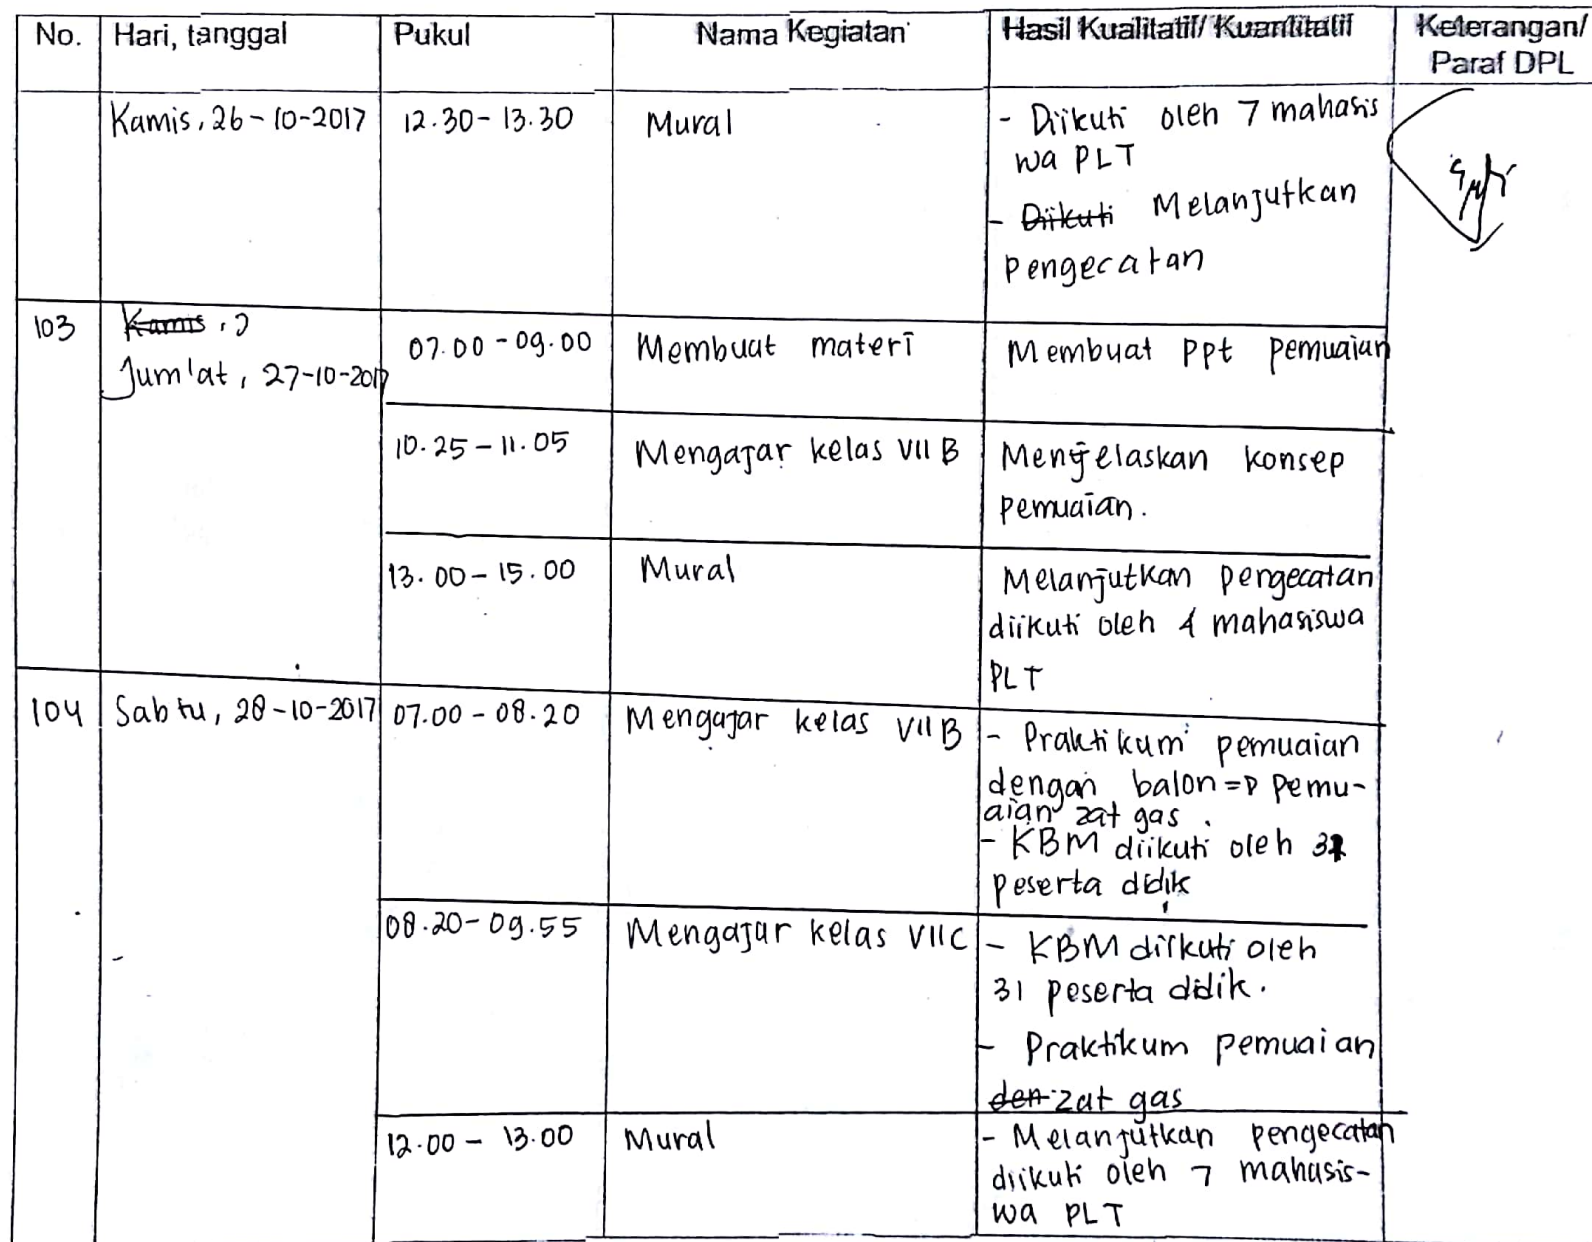 No. Hari, tanggal Pukul Nama Kegiatan Hasil Kualitatif/ Kuantitatif Keterangan/
Paraf DPL
Kamis, 26-10-2017 12.30-13.30 Mural - Diikuti oleh 7 mahasis
wa PLT
- Diikuti Melanjutkan
pengecatan
103 Kamis,
Jum'at, 27-10-2017 07.00-09.00 Membuat materi Membuat ppt pemuaian
10.25-11.05 Mengajar kelas VII B Menjelaskan konsep
pemuaian.
13.00-15.00 Mural Melanjutkan pengecatan
diikuti oleh 4 mahasiswa
PLT
104 Sabtu, 28-10-2017 07.00-08.20 Mengajar kelas VII B - Praktikum pemuaian
dengan balon => pemu-
aian zat gas.
- KBM diikuti oleh
peserta didik
08.20-09.55 Mengajar kelas VII C - KBM diikuti oleh
31 peserta didik.
- Praktikum pemuaian
den zat gas
12.00-13.00 Mural - Melanjutkan pengecatan
diikuti oleh 7 mahasis-
wa PLT